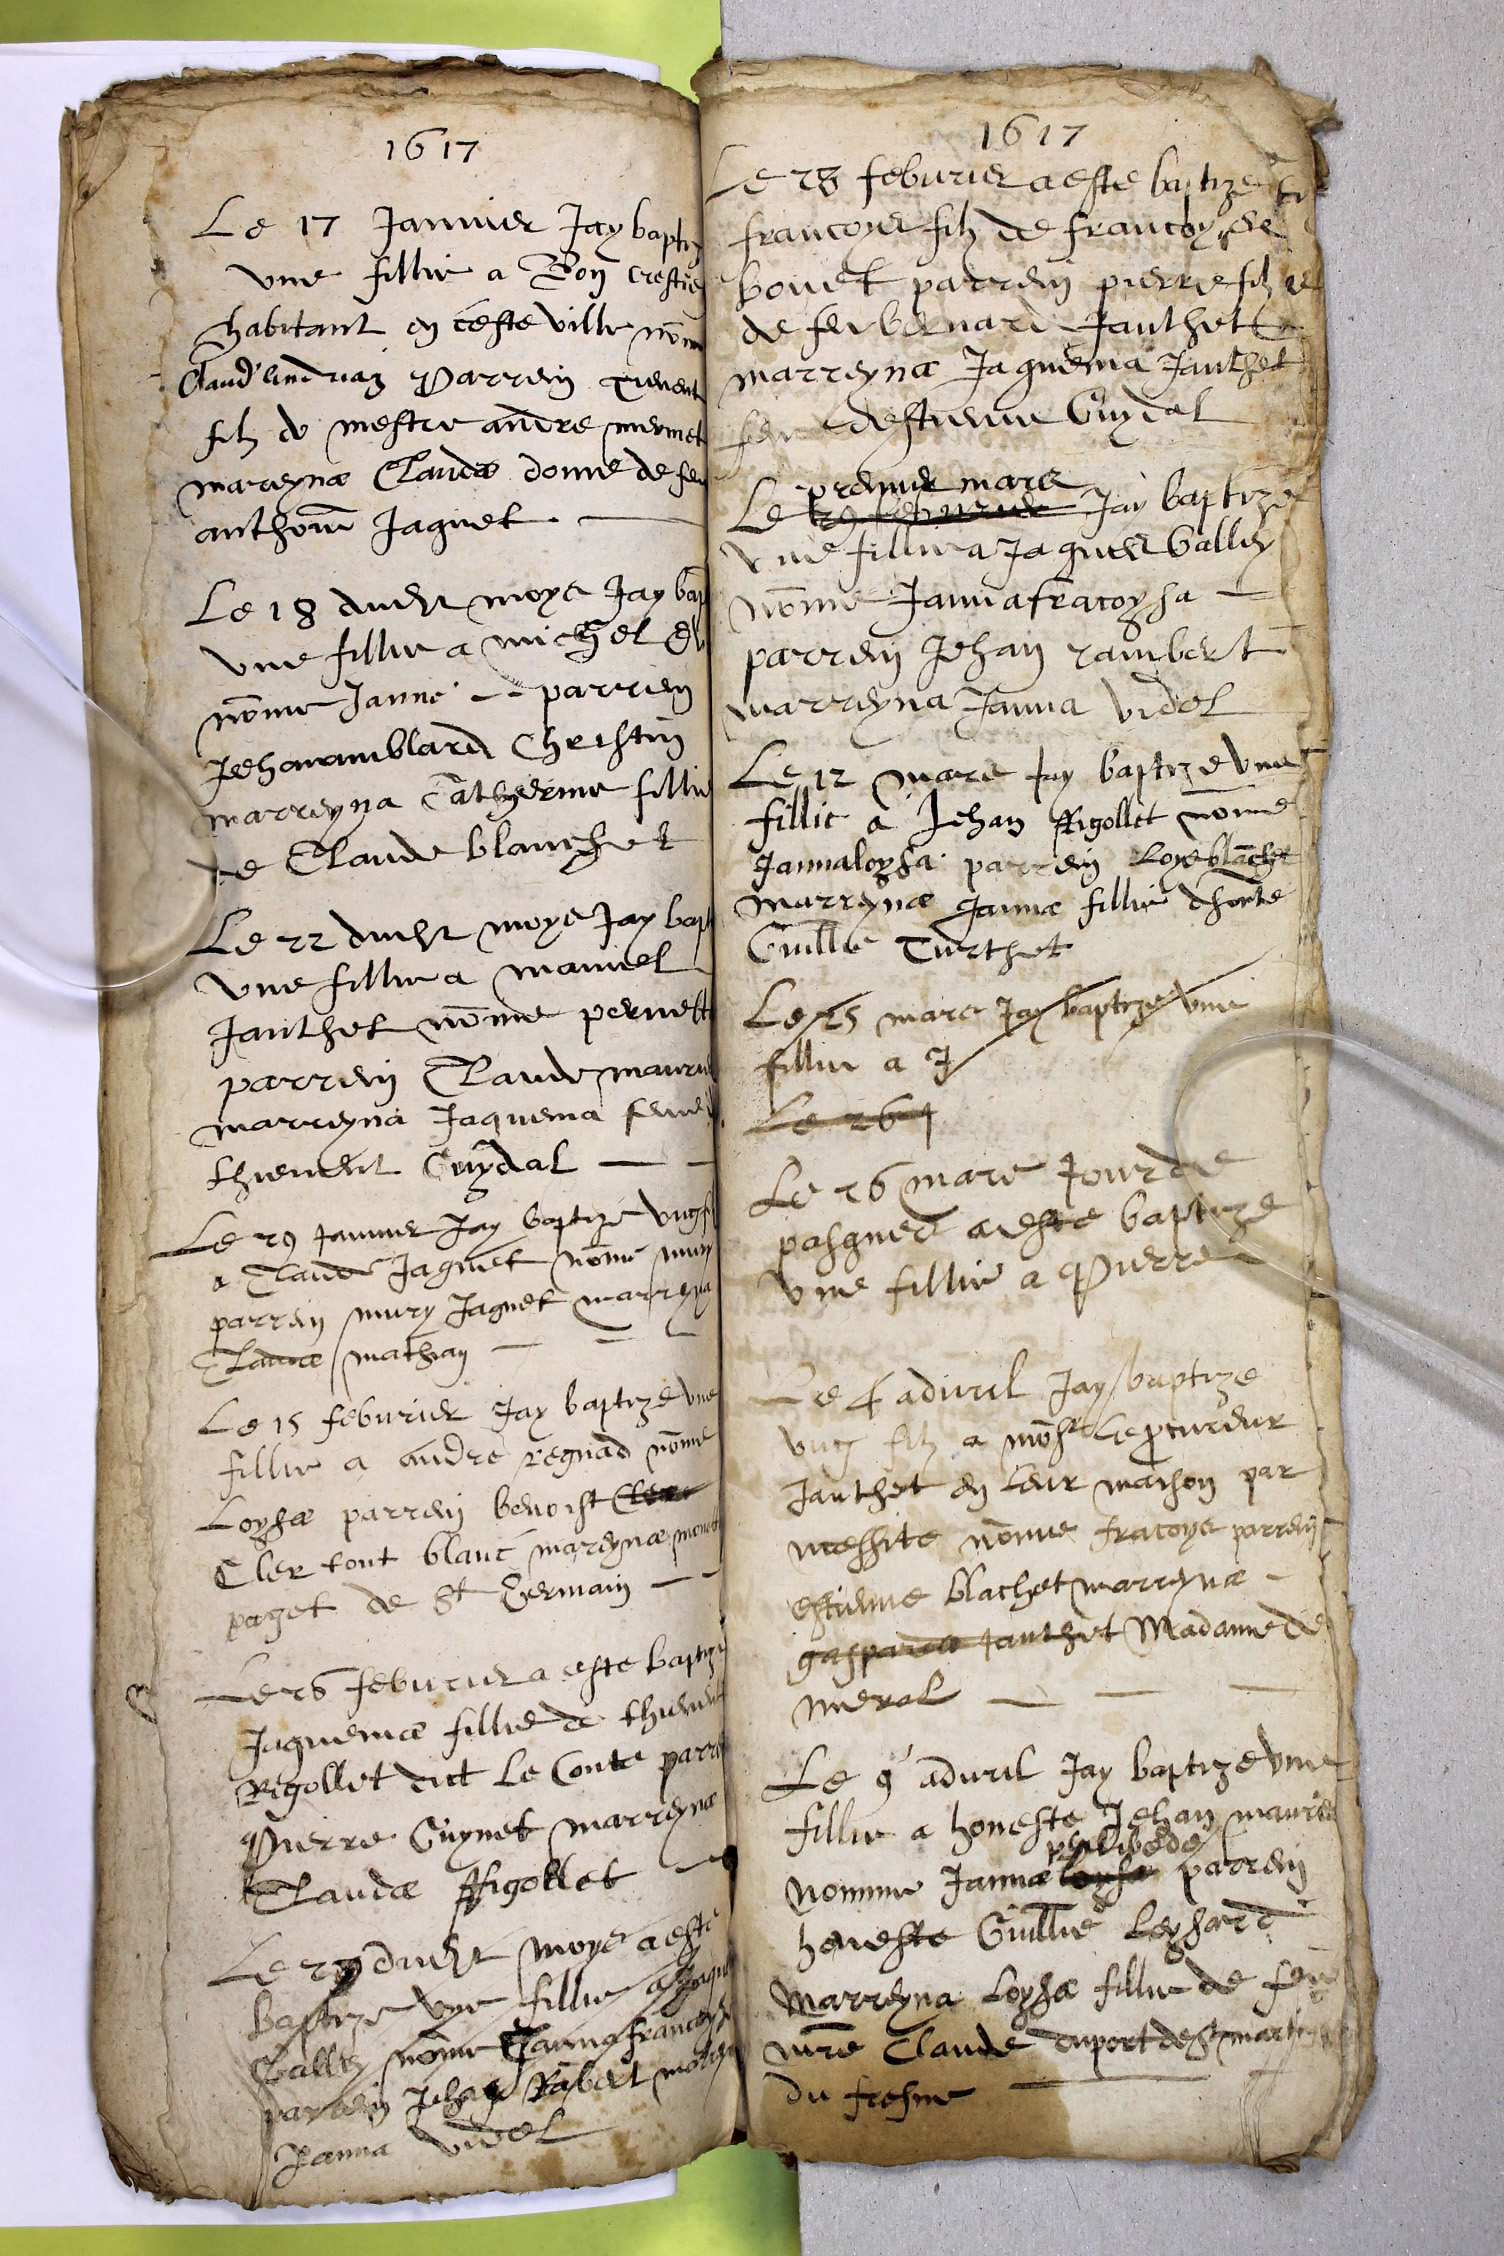 1617
Le 17 Janvier Jay baptiz
une fillie a Bon crestie
habitant en ceste ville nōme
Claud'andriaz Parrein Tievent
filz de mestre andre mermet
mareynæ Claudæ donne de feu
anthoine Jaquet
Le 18 dudit moys Jay bap
une fillie a michel
nōme Janne parrein
Jehanamblard Chrestin
marreyna Catherine fillie
de Claude blanchet
Le 22 dudit moys Jay bapt
une fillie a manuel
Janthet nōme pernette
parrein Claude mauriel
marreyna Jaquema feme
thievent Guydal
Le 29 Janvier Jay baptize ung f
a Claude Jaquet nōme mury
parrein mury Jaquet marreyna
Claudæ mathian
Le 15 feburier Jay baptize une
fillie a andre regnad nōme
Loysæ parrein benoist Cler
Cler tout blanc mareynæ
paget de St Germain
Le 26 feburier a este baptize
Jaquemæ fillie de thievent
Rigollet dict Le Conte parre
Pierre Guynet marreynæ
Claudæ Rigollet
Le 29 dudit moys a este
baptize une fillie a Jaque
Galley nōme Jannafrancoyse
parrein Jehan Rābert
Janna videl
1617
Le 28 feburier a este baptize
francoys filz de francoys de
bouet parrein pierre filz
de feu bernard Janthet
marreynæ Jaquema Janthet
destienne Guydal
premier mars
Le 29 feburier Jay baptize
une fillie a Jaques Galley
nōme Jannafrācoysa
parrein Jehan rambert
marreyna Janna videl
Le 12 mars Jay baptize une
fillie a Jehan Rigollet nōme
Jannaloysa parrein Loys blāchet
marreynæ Jannæ fillie dhonte
Guillie Turthet
Le 25 mars Jay baptize une
fillie a J
Le 26 J
Le 26 mars Jour de
pasques a este baptize
une fillie a Pierre
Le 4 apvril Jay baptize
ung filz a monsr le pcureur
Janthet en leur maison par
necessite nōme frācoys parrein
estienne blāchet marreynæ
gasparde Janthet Madame de
meral
Le 9 apvril Jay baptize une
fillie a honeste Jehan mauriel
philiberde
nomme Jannæ loysæ parrein
honeste Guillie Leysard
Marreyna Loysæ fillie de feu
mre Claude duport de St martin
du fresne